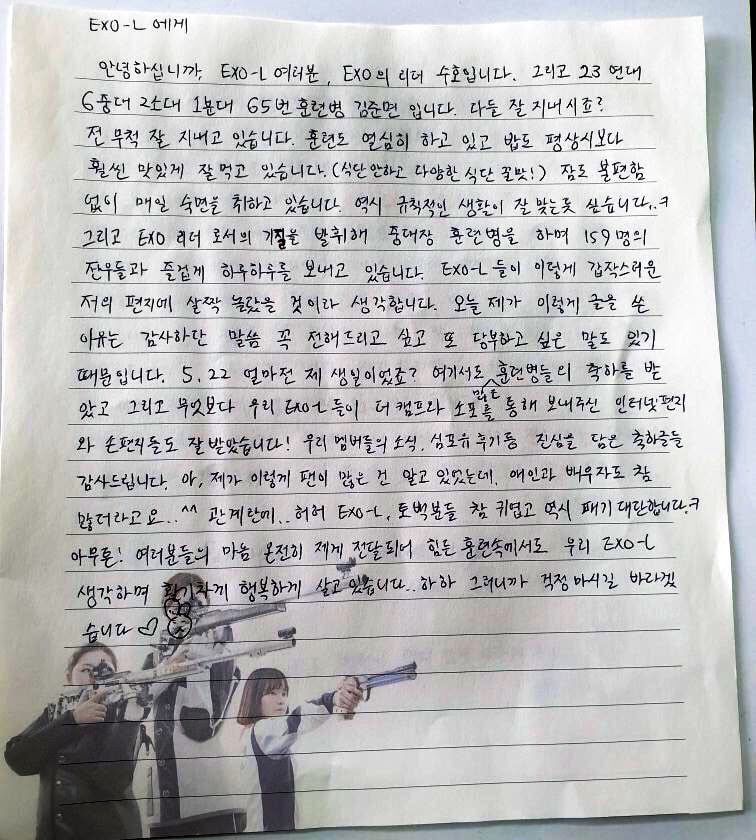 EXO-L 에게
안녕하십니까, EXO-L 여러분, EXO의 리더 수호입니다. 그리고 23연대
6중대 2소대 1분대 65번 훈련병 김준면 입니다. 다들 잘 지내시죠?
전 무척 잘 지내고 있습니다. 훈련도 열심히 하고 있고 밥도 평상시보다
훨씬 맛있게 잘먹고 있습니다. (식단안하고 다양한 식단 꿀맛!) 잠도 불편함
없이 매일 숙면을 취하고 있습니다. 역시 규칙적인 생활이 잘 맞는듯 싶습니다..ㅋ
그리고 EXO 리더 로서의 기질을 발휘해 중대장 훈련병을 하며 159명의
전우들과 즐겁게 하루하루를 보내고 있습니다. EXO-L 들이 이렇게 갑작스러운
저의 편지에 살짝 놀랐을 것이라 생각합니다. 오늘 제가 이렇게 글을 쓴
이유는 감사하단 말씀 꼭 전해드리고 싶고 또 당부하고 싶은 말도 있기
때문입니다. 5.22 얼마전 제 생일이었죠? 여기서도 많은 훈련병들의 축하를 받
았고 그리고 무엇보다 우리 EXO-L 들이 더캠프라 소포를 통해 보내주신 인터넷편지
와 손편지들도 잘 받았습니다! 우리 멤버들의 소식, 심포유 후기등 진심을 담은 축하글들
감사드립니다. 아, 제가 이렇게 팬이 많은 건 알고 있었는데, 애인과 배우자도 참
많더라고요..^^ 관계란에.. 허허 EXO-L, 토벅분들 참 귀엽고 역시 패기 대단합니다.ㅋ
아무튼! 여러분들의 마음 온전히 제게 전달되어 힘든 훈련속에서도 우리 EXO-L
생각하며 활기차게 행복하게 살고 있습니다.. 하하 그러니까 걱정마시길 바라겠
습니다♡